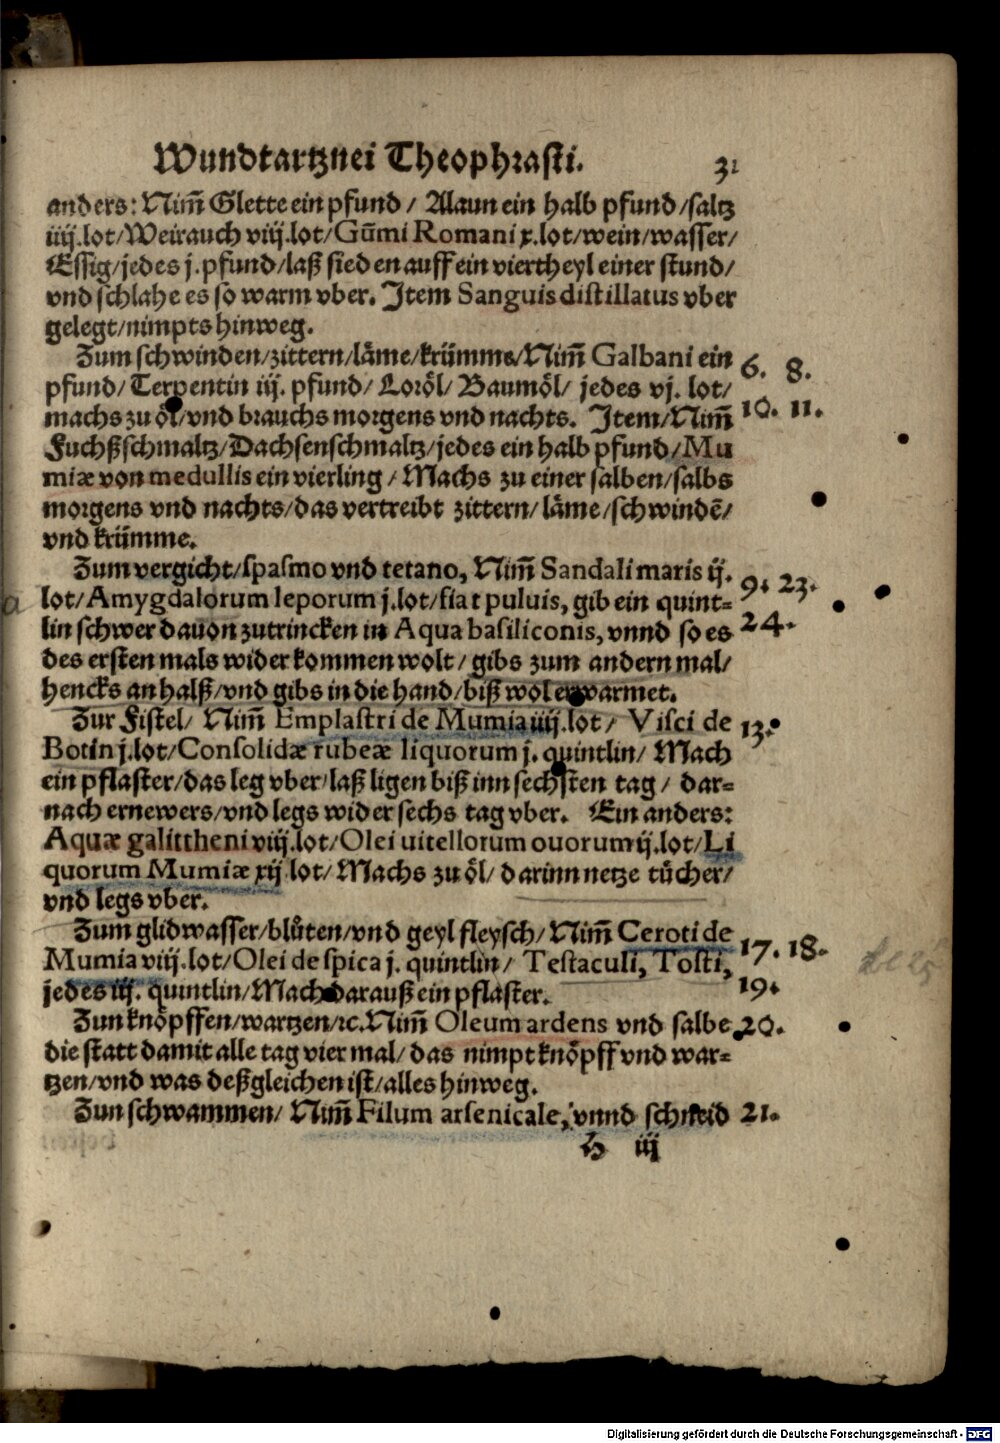 Wundtartznei Theophrasti. 31
anders: Nim̃ Glette ein pfund / Alaun ein halb pfund / saltz
iiij. lot / Weirauch viij. lot / Gum̃i Romani x. lot / wein / wasser /
Essig / jedes j. pfund / laß sieden auff ein viertheyl einer stund /
vnd schlahe es so warm vber. Item Sanguis distillatus vber
gelegt / nimpts hinweg.
Zum schwinden / zittern / läme / krümme / Nim̃ Galbani ein 6. 8.
pfund / Terpentin iij. pfund / Loröl / Baumöl / jedes vj. lot /
machs zu öl / vnd brauchs morgens vnd nachts. Item / Nim̃ 10. 11.
Fuchßschmaltz / Dachsenschmaltz / jedes ein halb pfund / Mu
miæ von medullis ein vierling / Machs zu einer salben / salbs
morgens vnd nachts / das vertreibt zittern / läme / schwindẽ /
vnd krümme.
Zum vergicht / spasmo vnd tetano, Nim̃ Sandali maris ij. 9. 23.
lot / Amygdalorum leporum j. lot / fiat puluis, gib ein quint=
lin schwer dauon zutrincken in Aqua basiliconis, vnnd so es 24.
des ersten mals wider kommen wolt / gibs zum andern mal /
hencks an halß / vnd gibs in die hand / biß wol erwarmet.
Zur Fistel / Nim̃ Emplastri de Mumia iiij. lot / Visci de 13.
Botin j. lot / Consolidæ rubeæ liquorum j. quintlin / Mach
ein pflaster / das leg vber / laß ligen biß inn sechsten tag / dar=
nach ernewers / vnd legs wider sechs tag vber. Ein anders:
Aquæ galittheni viij. lot / Olei uitellorum ouorum ij. lot / Li
quorum Mumiæ xij lot / Machs zu öl / darinn netze tücher /
vnd legs vber.
Zum glidwasser / blůten / vnd geyl fleysch / Nim̃ Ceroti de
Mumia viij. lot / Olei de spica j. quintlin / Testaculi, Tosti, 17. 18.
jedes iij. quintlin / Mach darauß ein pflaster. 19.
Zun knöpffen / wartzen / ꝛc. Nim̃ Oleum ardens vnd salbe 20.
die statt damit alle tag vier mal / das nimpt knöpff vnd war=
tzen / vnd was deßgleichen ist / alles hinweg.
Zun schwammen / Nim̃ Filum arsenicale, vnnd schneid 21.
H iij
Digitalisierung gefördert durch die Deutsche Forschungsgemeinschaft - DFG